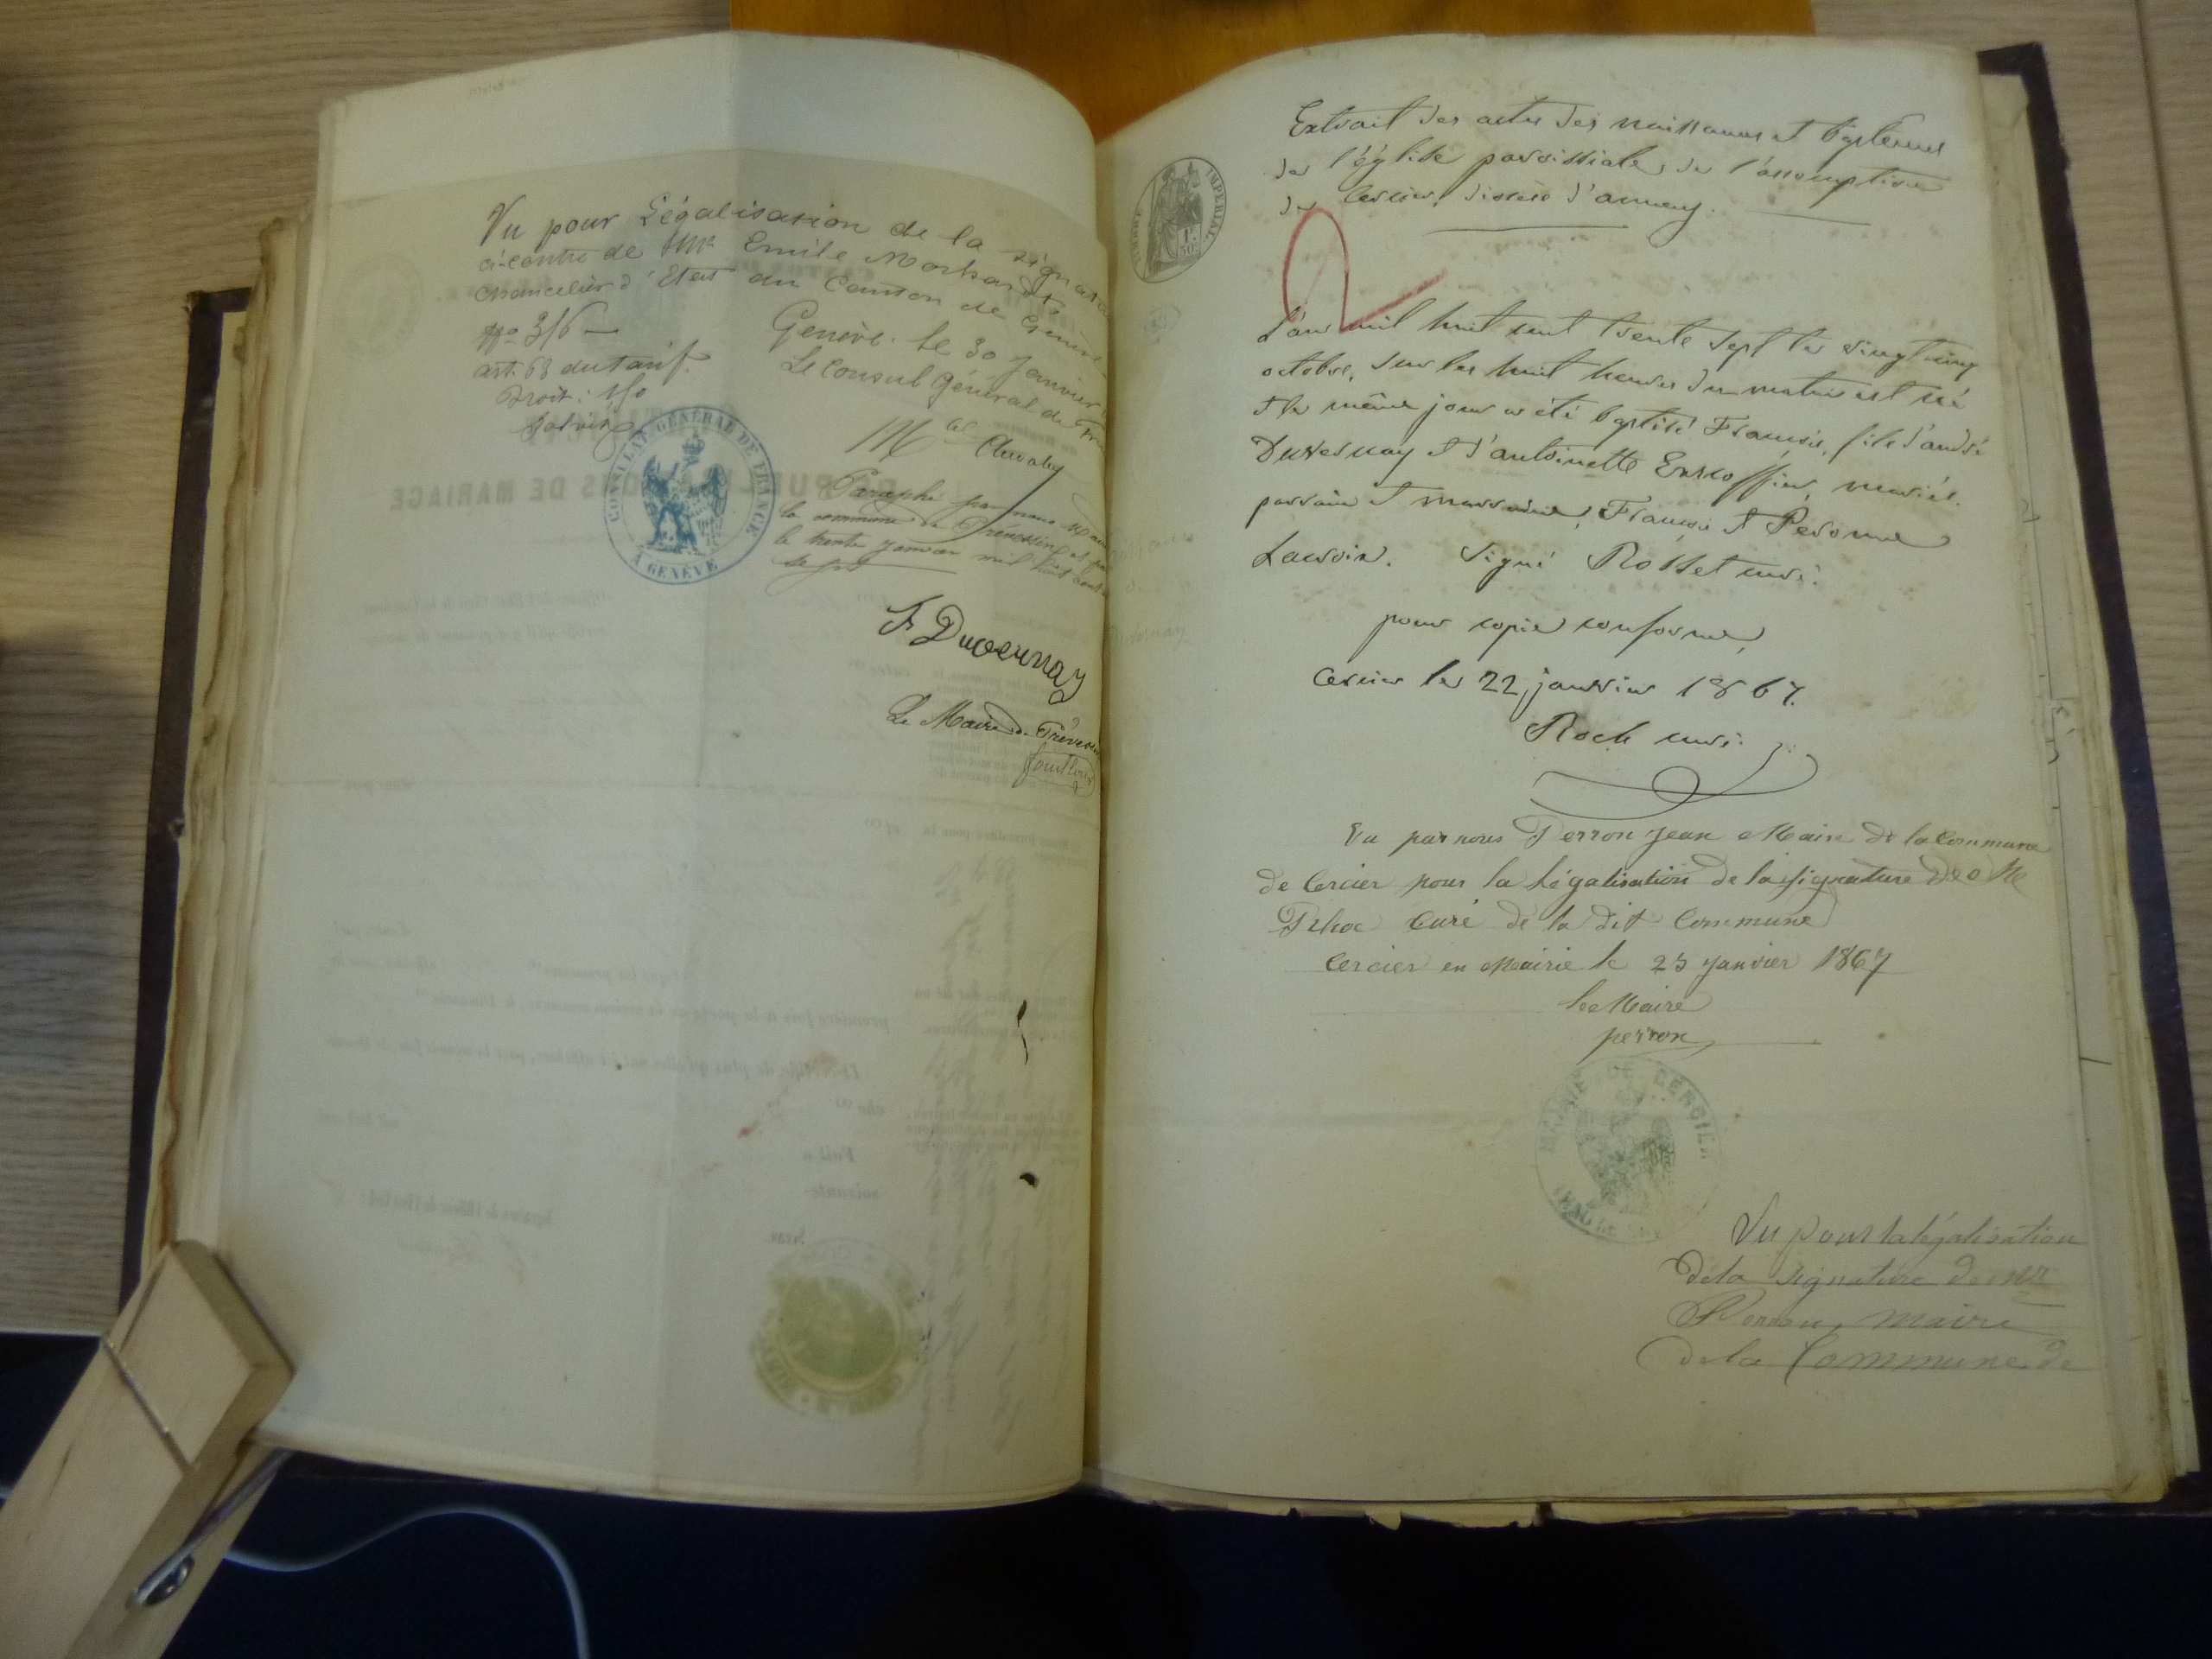 Vu pour Légalisation de la signat
ci-contre de Mr Emile
Chancelier d'Etat du Canton de Genève
No 316
art. 68 du tarif.
Droit :
Genève. le 30 Janvier
Le Consul Général de
CONSULAT GÉNÉRAL DE FRANCE
A GENÈVE
Paraphé par nous Maire
la commune de Prévessin et
le trente Janvier mil huit cent
F Duvernay
Le Maire de Préves
Extrait des actes des naissances et baptêmes
de l'église paroissiale de l'assomption
de Cercier, diocèse d'annecy.
TIMBRE IMPÉRIAL
1F.
50C.
2
L'an mil huit cent trente sept le vingt cinq
octobre, sur les huit heures du matin est né
et le même jour a été baptisé François, fils d'andré
Duvernay et d'antoinette mariés.
parrain et marraine, François et Péronne
Signé Rosset curé.
pour copie conforme,
Cercier le 22 janvier 1867.
Roch curé.
Vu par nous Perron Jean Maire de la Commune
de Cercier pour la légalisation de la signature de Mr
Curé de la dit Commune
Cercier en Mairie le 25 Janvier 1867
le Maire
perron
MAIRIE DE CERCIER
Vu pour la légalisation
de la signature de Mr
Perron, maire
de la Commune de